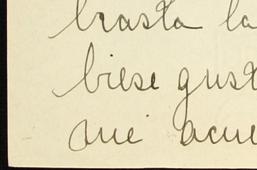 hasta la
biese gust
mi acue